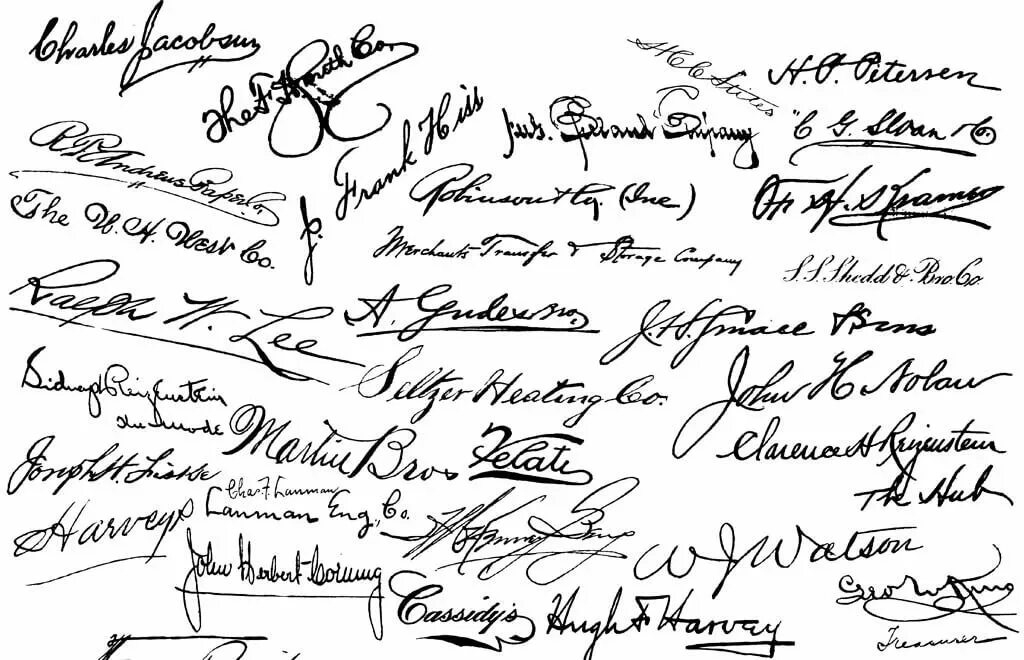 Charles Jacobsen
The F. H. Smith Co.
H. C. C. Stiles
H. P. Petersen
R. P. Andrews Paper Co.
J. Frank Hiss
Company
"C G. Sloan & Co
The W. H. West Co.
(Inc)
Merchants Transfer & Storage Company
S. S. Shedd & Bro. Co.
Ralph W. Lee
A. Gude & Bro.
& Sons
Sidney Reizenstein
The Mode
Seltzer Heating Co.
John H Nolan
Martin Bros
Velati
Clarence H Reizenstein
The Hub
Joseph H.
Chas. F. Lanman
Lanman Eng. Co.
Harveys
W J Watson
John Herbert Corning
Cassidy's
Hugh F Harvey
Geo W King
Treasurer